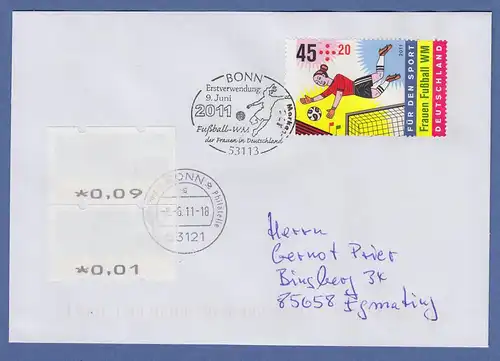 BONN
Erstverwendung:
9. Juni
2011
Fußball-WM
der Frauen in Deutschland
53113
45 +20
2011
FÜR DEN SPORT
Frauen Fußball WM
DEUTSCHLAND
*0,09
*0,01
BONN
Philatelie
.6.11-18
53121
Herrn
Gernot Prier
Binsberg 34
85658 Egmating